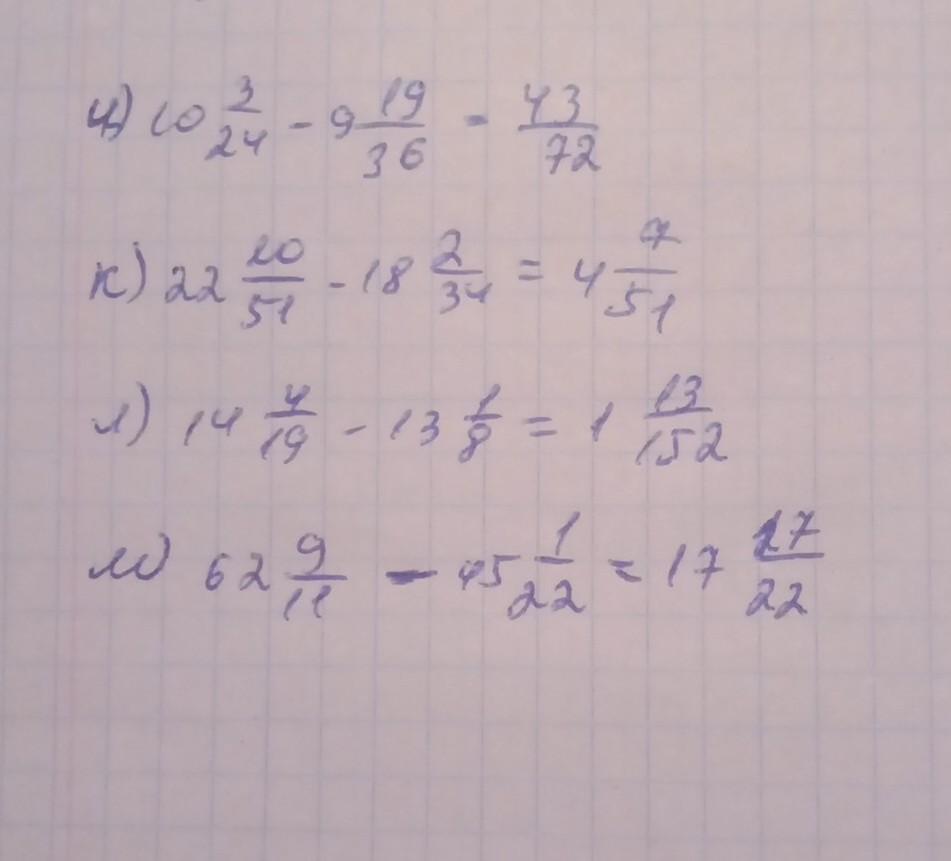 и) 10 3/24 - 9 19/36 = 43/72
к) 22 10/51 - 18 2/34 = 4 7/51
л) 14 4/19 - 13 1/8 = 1 13/152
м) 62 9/11 - 45 1/22 = 17 17/22